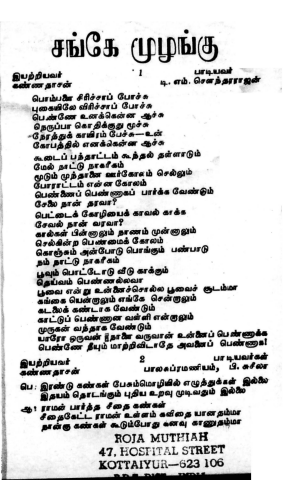 சங்கே முழங்கு
1
இயற்றியவர் பாடியவர்
கண்ணதாசன் டி. எம். சௌந்தரராஜன்
பொம்பளை சிரிச்சாப் போச்சு
புகையிலே விரிச்சாப் போச்சு
பெண்ணே உனக்கென்ன ஆச்சு
நெருப்பா கொதிக்குது மூச்சு
நேரத்துக் காயிரம் பேச்சு—உன்
கோபத்தில் எனக்கென்ன ஆச்சு
கூடைப் பந்தாட்டம் கூந்தல் தள்ளாடும்
மேல் நாட்டு நாகரீகம்
மூடும் முந்தானை ஊர்கோலம் செல்லும்
போராட்டம் என்ன கோலம்
பெண்ணைப் பெண்ணாகப் பார்க்க வேண்டும்
சேலை நான் தரவா?
பெட்டைக் கோழியைக் காவல் காக்க
சேவல் நான் வரவா?
கால்கள் பின்னாலும் நாணம் முன்னாலும்
செல்கின்ற பெண்மைக் கோலம்
கொஞ்சும் அன்போடு பொங்கும் பண்பாடு
தம் நாட்டு நாகரீகம்
பூவும் பொட்டோடு வீடு காக்கும்
தெய்வம் பெண்ணல்லவா
பூவை என்று உன்னைச்சொல்ல பூவைச் சூடம்மா
கங்கை யென்றாலும் எங்கே சென்றாலும்
கடலைக் கண்டாக வேண்டும்
காட்டுப் பெண்ணான வள்ளி என்றாலும்
முருகன் வந்தாக வேண்டும்
யாரோ ஒருவன் நானே வருவான் உன்னைப் பெண்ணாக்க
பெண்ணே நீயும் மாற்றிவிடாதே அவனைப் பெண்ணாக!
2
இயற்றியவர் பாடியவர்கள்
கண்ணதாசன் பாலசுப்ரமணியம், பி. சுசீலா
பெ: இரண்டு கண்கள் பேசும்மொழியில் எழுத்துக்கள் இல்லை
இதயம் தொடங்கும் புதிய உறவு முடிவதும் இல்லை
ஆ: ராமன் பார்த்த சீதை கண்கள்
சீதைகேட்ட ராமன் உள்ளம் கவிதை யானதம்மா
நான்கு கண்கள் கூடும்போது கனவு காணுதம்மா
ROJA MUTHIAH
47, HOSPITAL STREET
KOTTAIYUR—623 106